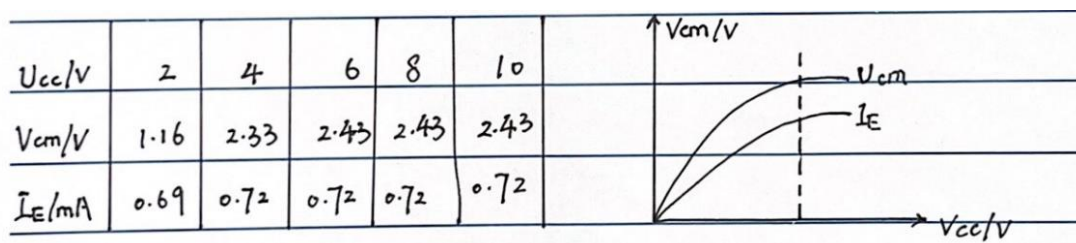 Ucc/V 2 4 6 8 10
Vcm/V 1.16 2.33 2.43 2.43 2.43
IE/mA 0.69 0.72 0.72 0.72 0.72
Vcm/V
Ucm
IE
Vcc/V